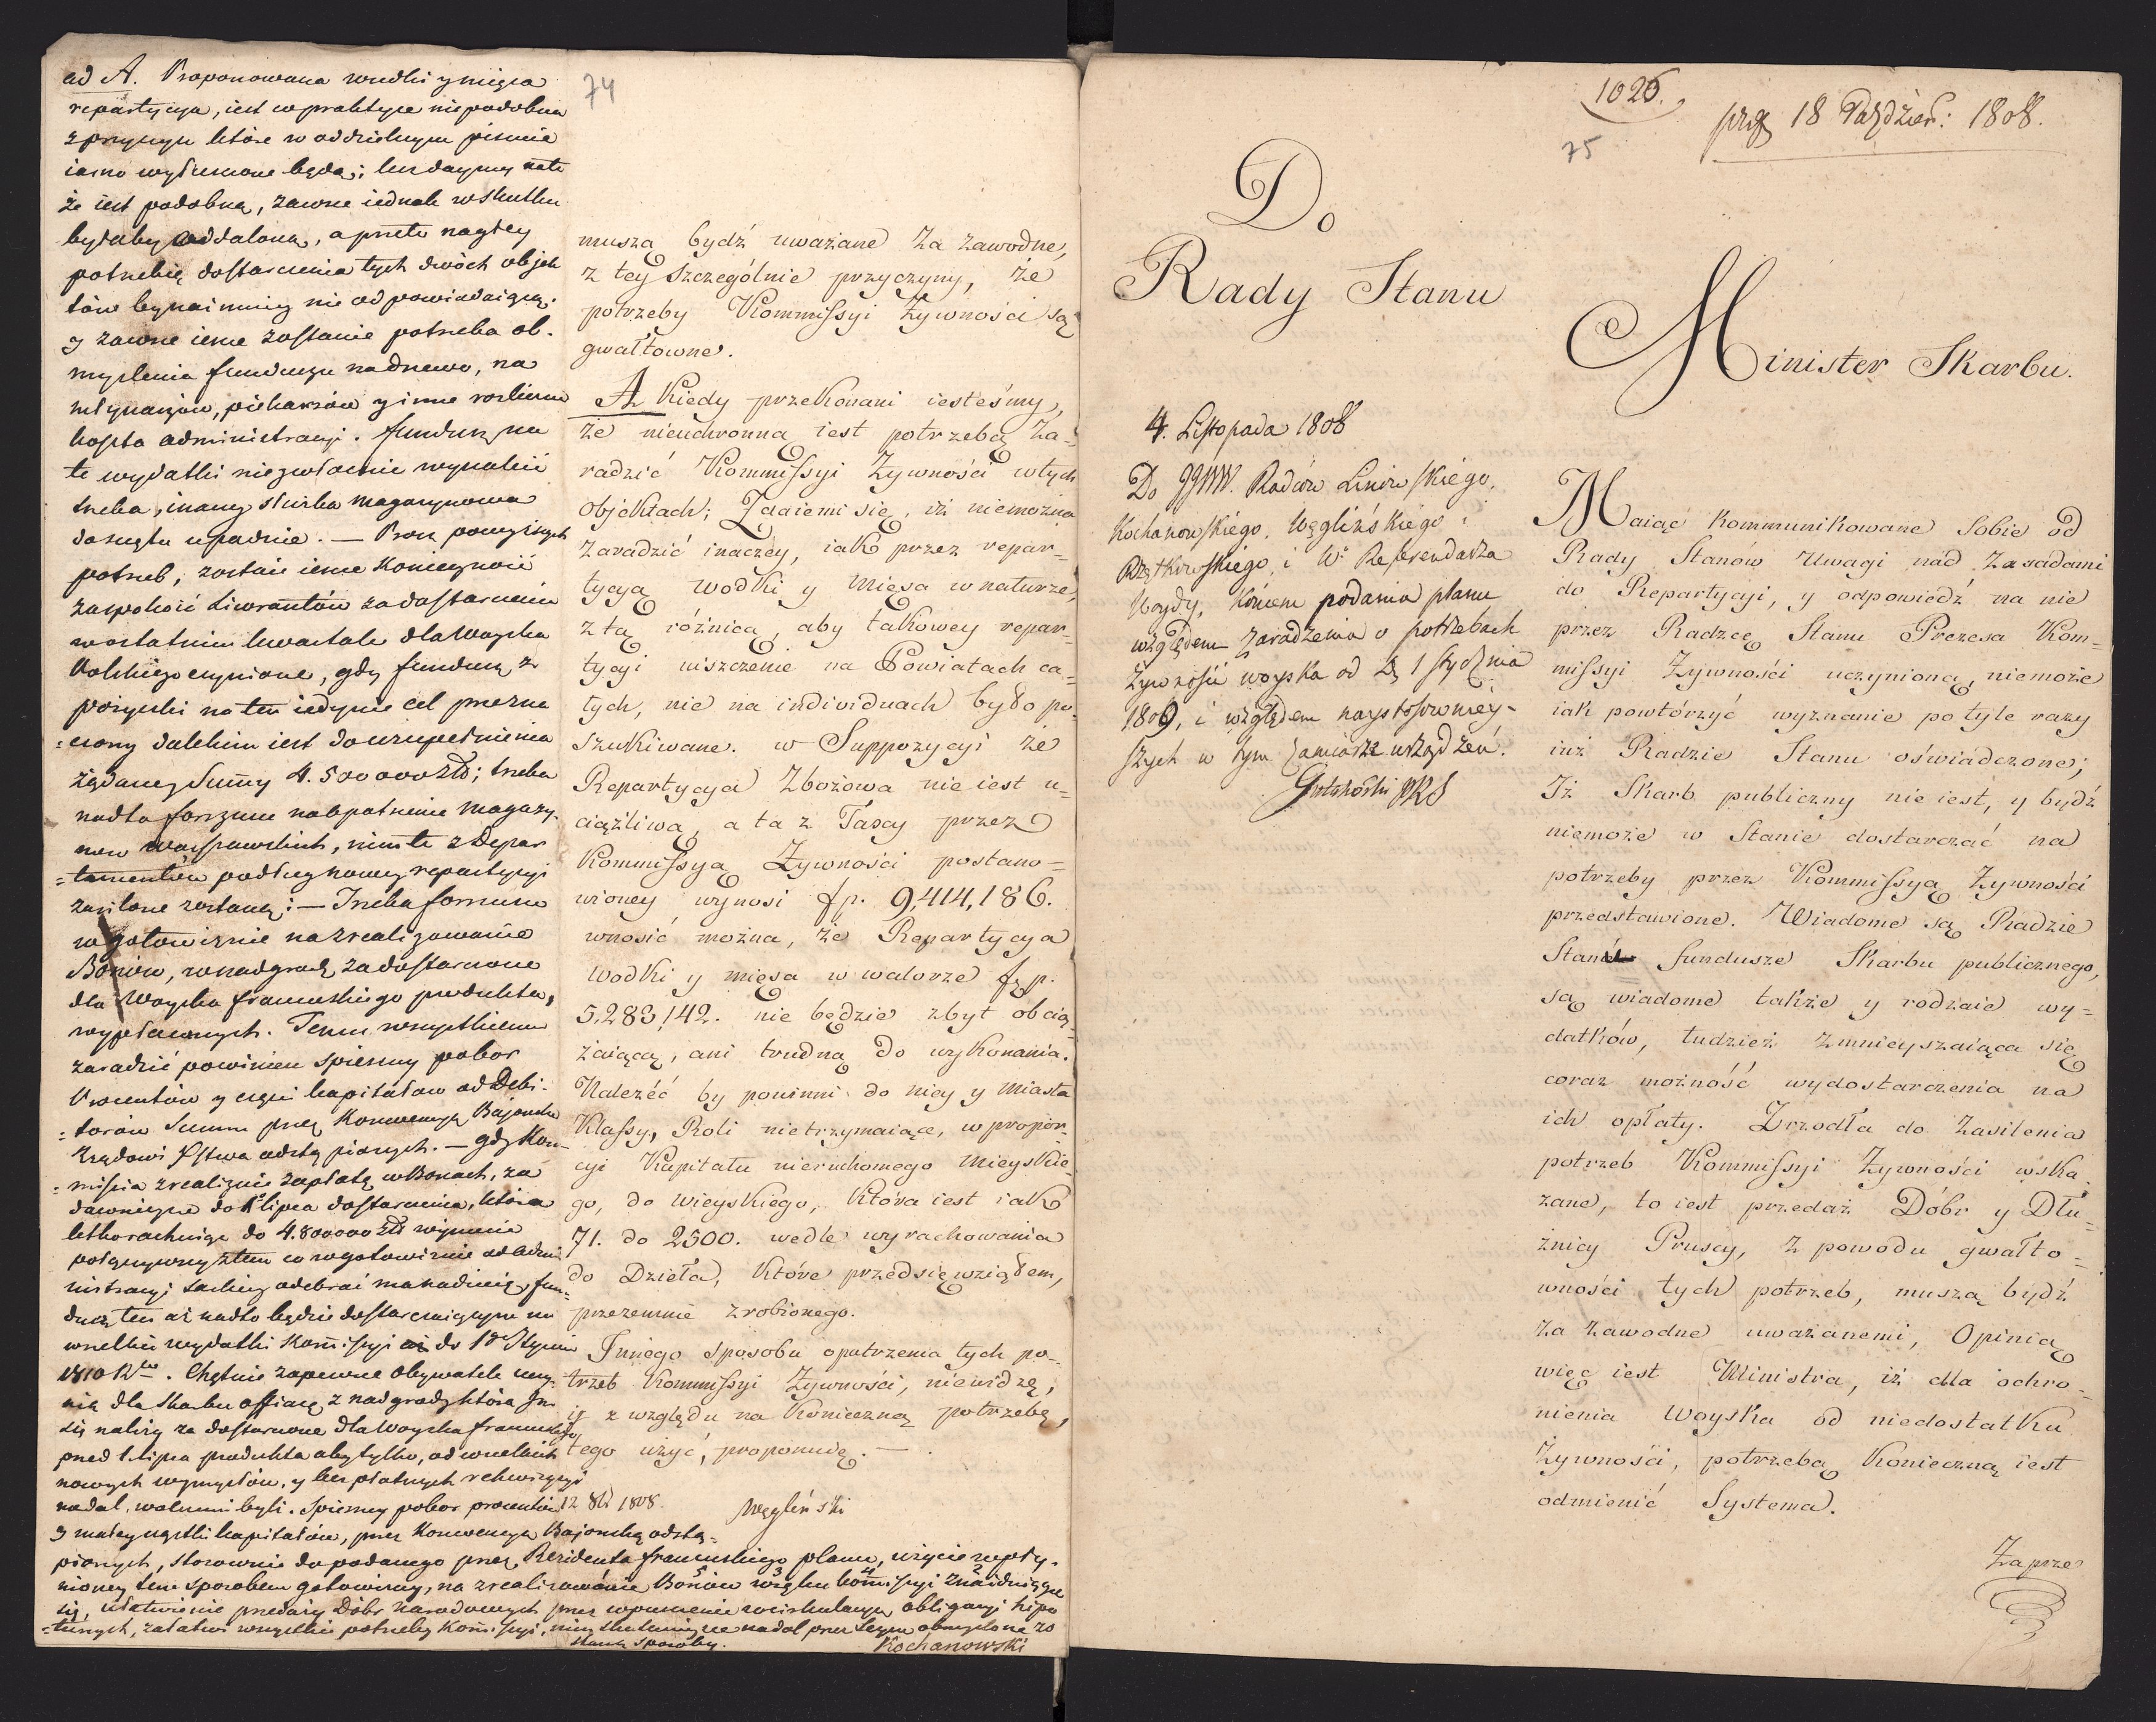 ad A. Proponowana wudki y mięsa
repartycya, iest w praktyce niepodobna
z przyczyn które w oddzielnym pismie
iasno wyłuszczone będą; lecz daymy na to
że iest podobną, zawsze iednak w skutku
byłaby oddaloną, a przeto nagłey
potrzebie dostarczenia tych dwóch objek
tów bynaimniey nie odpowiadaiącą.
y zawsze ieszcze zostanie potrzeba ob-
myslenia funduszu na drzewo, na
młynarzów, piekarzów y inne rozliczne
koszta administracyi. fundusz na
te wydatki niezwłocznie wynaleść
trzeba, inaczey służba magazynowa
do szczętu upadnie. — Procz powyższych
potrzeb, zostaie ieszcze konieczność
zaspokoić Liwerantów za dostarczenia
w ostatnim kwartale dla Woyska
Polskiego czynione, gdy fundusz z
pożyczki na ten iedynie cel przezna
=czony dalekim iest do uzupełnienia
żądaney Summy 4.500000 Złł; trzeba
nadto forszusu na opatrzenie magazy-
now Warszawskich, nim te z Depar
=tamentów podług nowey repartycyi
zasilone zostaną: — Trzeba forszusu
w gotowiznie na zrealizowanie
Bonów, w nadgrodę za dostarczone
dla Woyska francuskiego produkta,
wypłaconych. Temu wszystkiemu
zaradzić powinien spieszny pobor
Procentów y częsci kapitałów od Debi-
=torów Summ przez Konwencyą Bajońską
Rządowi Xstwa odstąpionych. — gdy Kom-
=missia zrealizuie zapłatę w Bonach, za
dawnieysze do 1° lipca dostarczenia, która
lekko rachuiąc do 4.800000 złł wyniesie
połączywszy z tem co w gotowiznie od Admi
nistracyi Saskiey odebrać ma nadzieię, fun-
dusz ten aż nadto będzie dostarczaiącym na
wszelkie wydatki Kommissyi do 1° Stycznia
1810 Rku. Chętnie zapewne Obywatele uczy-
nią dla Skarbu offiarę z nadgrody która Im
się należy za dostarczone dla Woyska francuskiego
przed 1. lipca produkta aby tylko, od wszelkich
nowych wymysłów, y bezpłatnych rekwizycyi
nadal, wolnemi byli. Spieszny pobor procentów
y małey cząstki kapitałów, przez Konwencyą Bajońską odstą-
pionych, stosownie do podanego przez Rezidenta francuskiego planu, użycie
tem sposobem gotowizny, na zrealizowanie Bonów w ręku kommissyi znaiduiących
się, ułatwienie przedaży Dóbr narodowych przez wpuszczenie w cirkulacyą obligacyi hipo
=tecznych, załatwi wszystkie potrzeby Kommissyi, nim skutecznieysze nadal przez Seym obmyslone zo
staną sposoby. Kochanowski
74
muszą bydź uważane za zawodne,
z tey szczególnie przyczyny, że
potrzeby Kommissyi Żywności są
gwałtowne.
A Kiedy przekonani iesteśmy,
że nieuchronną iest potrzebą za=
radzić Kommissyi Żywności w tych
objektach; Zdaiemi się, iż niemożna
zaradzić inaczey, iak przez repar=
tycyą wodki y mięsa w naturze,
z tą róźnicą, aby takowey repar=
tycyi uiszczenie na Powiatach ca=
łych, nie na individuach było po=
szukiwane. w Suppozycyi że
Repartycya Zbożowa nie iest u=
ciążliwą, a ta z Taxy przez
Kommissyą Żywności postano=
wioney wynosi fp. 9,414,186.
wnosić można, że Repartycya
wodki y mięsa w walorze fp.
5,283,142. nie będzie zbyt obcią=
żaiącą, ani trudną do wykonania.
Należéć by powinni do niey y Miasta
Klassy, Roli nietrzymaiące, w propor=
cyi Kapitału nieruchomego Mieyskie=
go, do wieyskiego, która iest iak
71. do 2500. wedle wyrachowania
do Dzieła, które przedsięwziąłem,
przezemnie zrobionego.
Innego sposobu opatrzenia tych po=
trzeb Kommissyi Żywności, niewidzę,
z względu na konieczną potrzebę,
tego użyć, proponuię. —
12 8br 1808. Węgleński
1026.
prz 18 Paździer: 1808.
75
Do
Rady Stanu
Minister Skarbu.
4. Listopada 1808
Do JJWW. Radców Linowskiego,
Kochanowskiego, Węglińskiego i
i W° Referendarza
Woydy, końcem podania planu
względem zaradzenia o potrzebach
Żywności woyska od D. 1 Stycznia
1809, i względem naystosowniey-
szych w tym zamiarze urządzeń.
Gutakowski PRS
Maiąc kommunikowane Sobie od
Rady Stanów Uwagi nad Zasadami
do Repartycyi, y odpowiedź na nie
przez Radzcę Stanu Prezesa Kom=
missyi Żywności uczynioną, niemoże
iak powtórzyć wyznanie po tyle razy
iuż Radzie Stanu oświadczone;
Iż Skarb publiczny nie iest, y bydź
niemoże w Stanie dostarczać na
potrzeby przez Kommissyą Żywności
przedstawione. Wiadome są Radzie
Stanu fundusze Skarbu publicznego,
są wiadome także y rodzaie wy=
datków, tudzież zmnieyszaiąca się
coraz możność wydostarczenia na
ich opłaty. Zrzodła do Zasilenia
potrzeb Kommissyi Żywności wska=
zane, to iest przedaż Dóbr y Dłu=
żnicy Pruscy, z powodu gwałto=
wności tych potrzeb, muszą bydź
za zawodne uważanemi, Opinią
więc iest Ministra, iż dla ochro=
nienia Woyska od niedostatku
Żywności, potrzebą Konieczną iest
odmienić Systema.
Zaprze